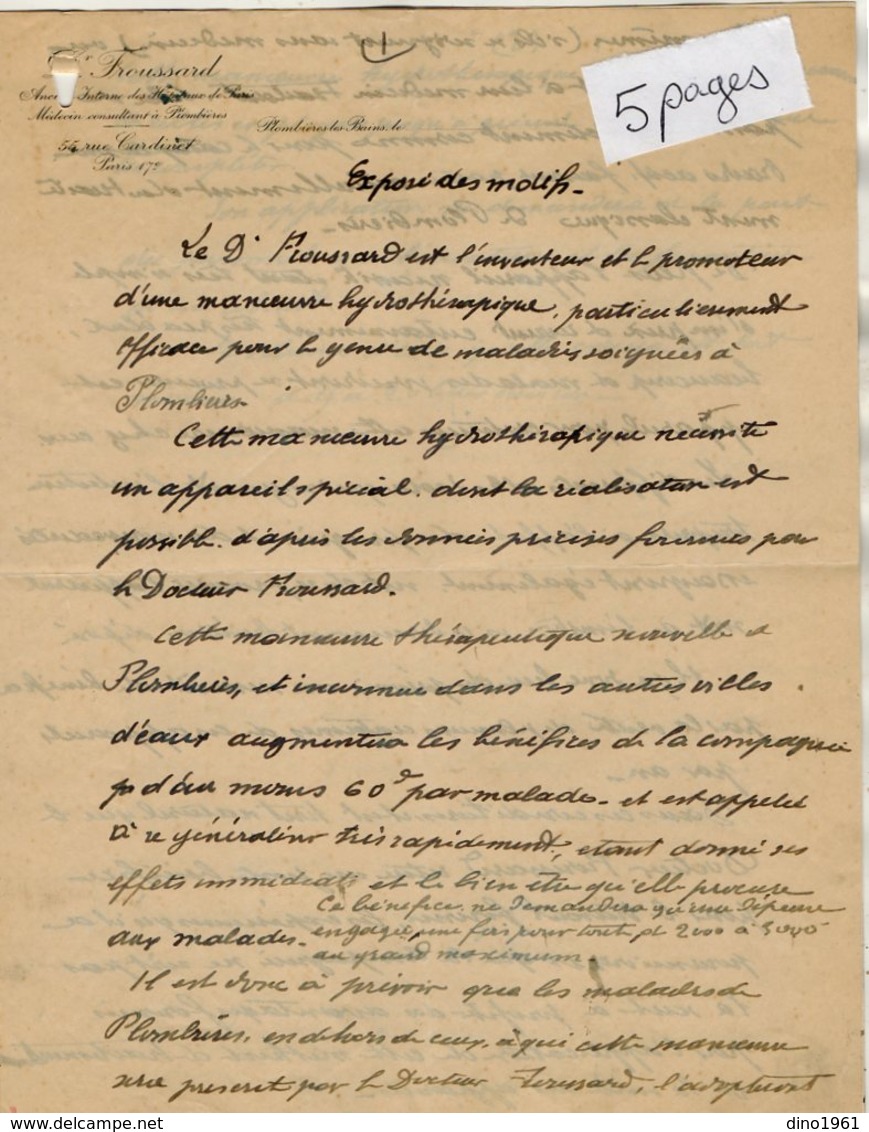 Dr Froussard
Ancien Interne des Hôpitaux de Paris
Médecin consultant à Plombières
55 rue Cardinet
Paris 17e
Plombières-les-Bains, le
1
5 pages
Exposé des motifs_
Le Dr Froussard est l'inventeur et le promoteur
d'une manœuvre hydrothérapique, particulièrement
efficace pour le genre de maladies soignées à
Plombières
Cette manœuvre hydrothérapique nécessite
un appareil spécial. dont la réalisation est
possible. d'après les données précises fournies par
le Docteur Froussard.
Cette manœuvre thérapeutique nouvelle à
Plombières, et inconnue dans les autres villes
d'eaux augmentera les bénéfices de la compagnie
d'au moins 60f par malade_ et est appelée
à se généraliser très rapidement, étant donné ses
effets immédiats et le bien être qu'elle procure
aux malades_
Ce bénéfice ne demandera qu'une dépense
engagée une fois pour toute de 2000 à 3000
au grand maximum_
Il est donc à prévoir que les malades de
Plombières, en dehors de ceux à qui cette manœuvre
sera prescrit par le Docteur Froussard, l'adopteront
dino1961